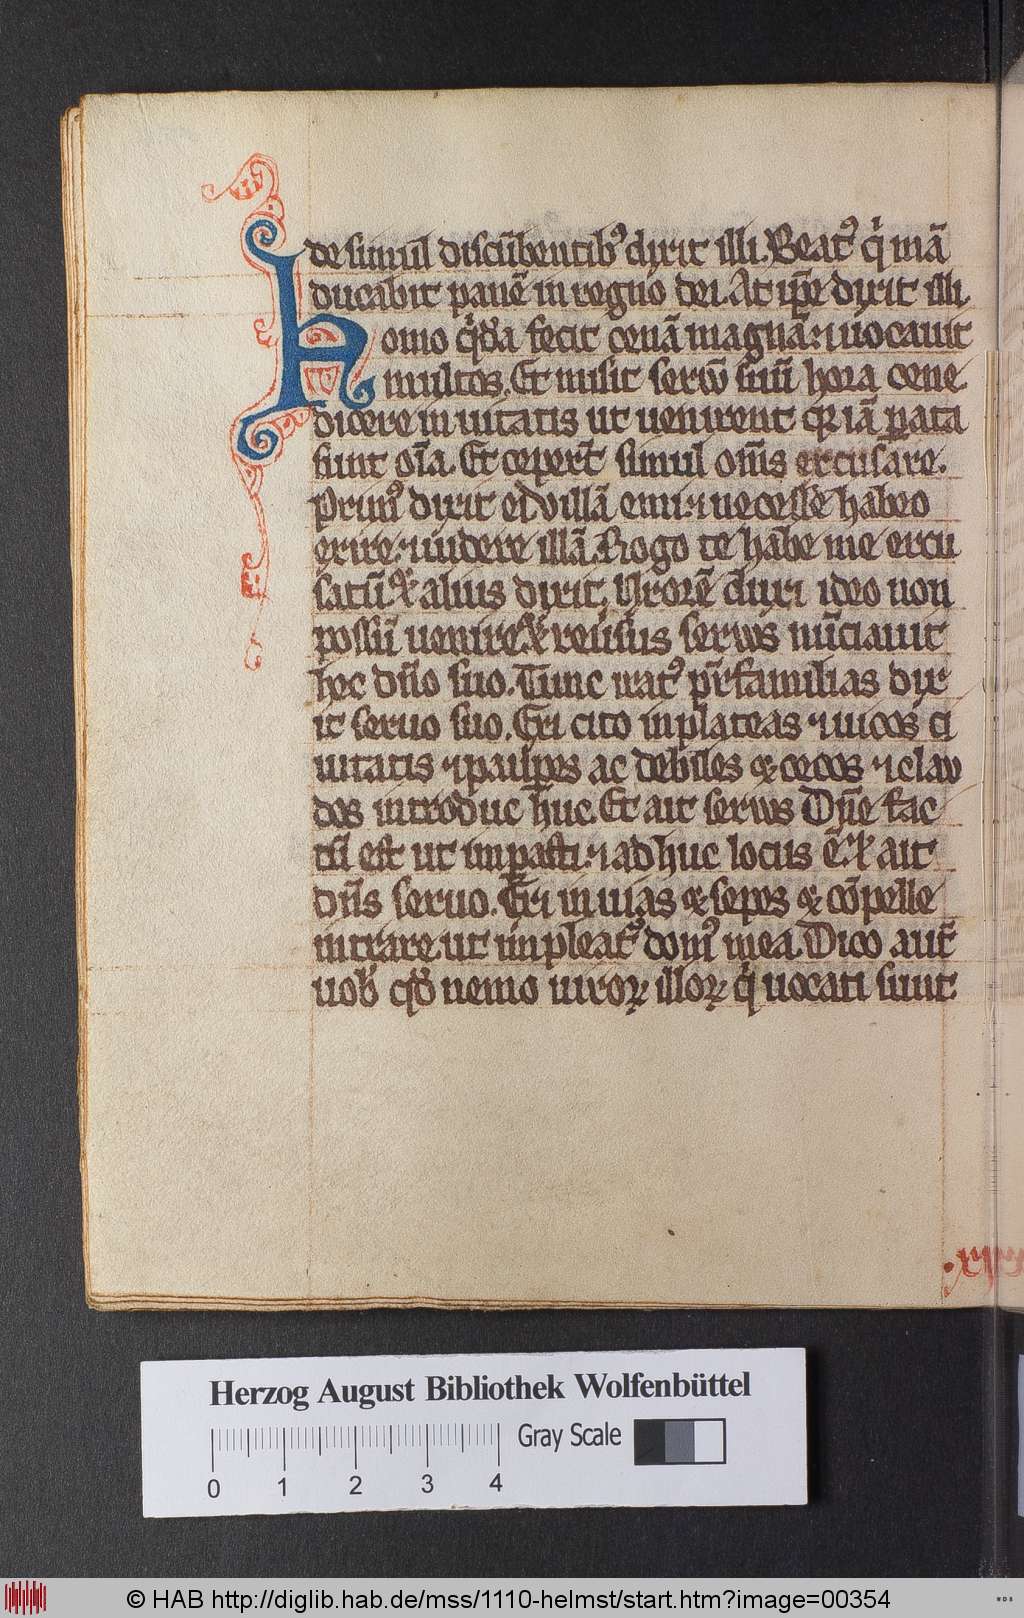 de simul discūbentibꝰ dixit illi. Beatꝰ q̇ mā
ducabit panē in regno dei. At ip̄e dixit illi
Homo q̇dā fecit cenā magnā ⁊ uocauit
multos. Et misit seruū suū hora cene
dicere inuitatis ut uenirent q iā ꝑata
sunt oīa. Et ceperūt simul om̄s excusare.
Primꝰ dixit ei Villā emi ⁊ necesse habeo
exire ⁊ uidere illā. Rogo te habe me excu
satū. Et alius dixit. Uxorē duxi ideo non
possū uenire. Et reūsus seruus nūciauit
hec dn̄o suo. Tunc iratꝰ pr̄familias dix
it seruo suo. Exi cito in plateas ⁊ uicos ci
uitatis ⁊ pauꝑes ac debiles et cecos ⁊ clau
dos introduc huc. Et ait seruus Dn̄e fac
tū est ut imꝑasti ⁊ adhuc locus ē. Et ait
dn̄s seruo. Exi in uias et sepes et cōpelle
intrare ut impleatꝰ domꝰ mea. Dico aut̄
uob̄ qd̄ nemo uiroꝝ illoꝝ q̇ uocati sunt
Herzog August Bibliothek Wolfenbüttel
Gray Scale
0 1 2 3 4
© HAB http://diglib.hab.de/mss/1110-helmst/start.htm?image=00354